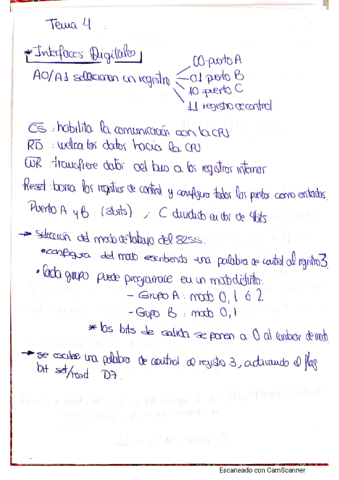 Tema 4
* Interfaces Digitales
A0/A1 seleccionan un registro
00 puerto A
01 puerto B
10 puerto C
11 registro de control
CS : habilita la comunicación con la CPU
RD : vuelca los datos hacia la CPU
WR : transfiere datos del bus a los registros internos
Reset: borra los registros de control y configura todos los puertos como entradas.
Puerto A y B (8bits) ; C dividido en dos de 4bits
→ Selección del modo de trabajo del 8255.
• configura del modo escribiendo una palabra de control al registro 3.
• Cada grupo puede programarse en un modo distinto.
- Grupo A : modo 0, 1 ó 2
- Grupo B : modo 0, 1
* los bits de salida se ponen a 0 al cambiar de modo
→ se escribe una palabra de control al registro 3, activando el flag
bit set/reset D7.
Escaneado con CamScanner